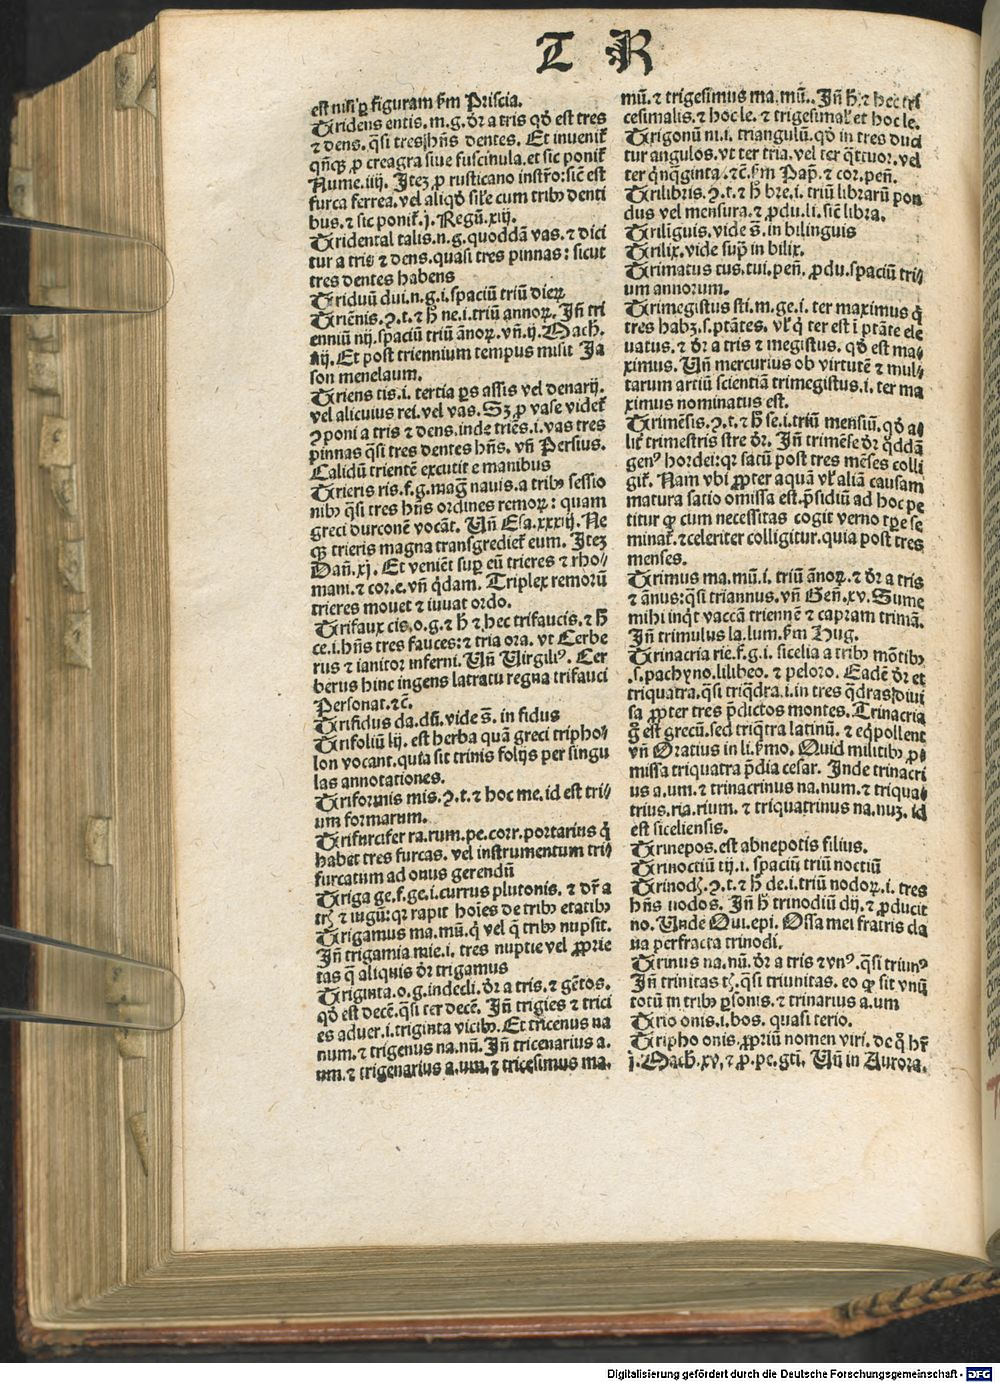 T R
est nisi ꝑ figuram ẜm Priscia.
Tridens entis. m. g. dr̄ a tris qd̓ est tres
⁊ dens. q̄si tres hn̄s dentes. Et inuenit᷑
qn̄qꝫ ꝓ creagra siue fuscinula. et sic ponit᷑
Nume. iiij. Itez ꝓ rusticano instr̄o: sic̄ est
furca ferrea. vel aliqd̓ sil̓e cum tribꝰ denti
bus. ⁊ sic ponit᷑. j. Regū. xiij.
Tridental talis. n. g. quoddā vas. ⁊ dici
tur a tris ⁊ dens. quasi tres pinnas: sicut
tres dentes habens
Triduū dui. n. g. i. spaciū triū dieꝝ
Triēnis. ꝯ. t. ⁊ h̄ ne. i. triū annoꝝ. Jn̄ tri
enniū nij. spaciū triū ānoꝝ. vn̄. ij. Mach.
iiij. Et post triennium tempus misit Ja
son menelaum.
Triens tis. i. tertia ꝑs assis vel denarij.
vel alicuius rei. vel vas. Sꝫ ꝓ vase videt᷑
ꝯponi a tris ⁊ dens. inde triēs. i. vas tres
pinnas q̄si tres dentes hn̄s. vn̄ Persius.
Calidū trientē excutit e manibus
Trieris ris. f. g. maḡ nauis. a tribꝰ sessio
nibꝰ q̄si tres hn̄s ordines remoꝝ: quam
greci durconē vocāt. Un̄ Esa. xxxiij. Ne
qꝫ trieris magna transgrediet᷑ eum. Itez
Dan̄. xj. Et veniēt suꝑ eū trieres ⁊ rho⸗
mani. ⁊ cor. e. vn̄ q̄dam. Triplex remorū
trieres mouet ⁊ iuuat ordo.
Trifaux cis. o. g. ⁊ h̄ ⁊ hec trifaucis. ⁊ h̄
ce. i. hn̄s tres fauces: ⁊ tria ora. vt Cerbe
rus ⁊ ianitor inferni. Un̄ Virgiliꝰ. Cer
berus hinc ingens latratu regna trifauci
Personat. ⁊c̄.
Trifidus da. dū. vide s̄. in fidus
Trifoliū lij. est herba quā greci tripho⸗
lon vocant. quia sit trinis folijs per singu
las annotationes.
Triformis mis. ꝯ. t. ⁊ hoc me. id est tri⸗
um formarum.
Trifurcifer ra. rum. pe. corr. portarius q̇
habet tres furcas. vel instrumentum tri⸗
furcatum ad onus gerendū
Triga ge. f. ge. i. currus plutonis. ⁊ dr̄ a
⁊ iugū: qꝛ rapit hoīes de tribꝰ etatibꝰ
Trigamus ma. mū. q̇ vel q̄ tribꝰ nupsit.
Jn̄ trigamia mie. i. tres nuptie vel ꝓprie
tas q̄ aliquis dr̄ trigamus
Triginta. o. g. indecli. dr̄ a tris. ⁊ gētos.
qd̓ est decē. q̄si ter decē. Jn̄ trigies ⁊ trici
es aduer. i. triginta vicibꝰ. Et tricenus na
num. ⁊ trigenus na. nū. Jn̄ tricenarius a.
um. ⁊ trigenarius a. um. ⁊ tricesimus ma.
mū. ⁊ trigesimus ma. mū. Jn̄ h̄. ⁊ hec tri
cesimalis. ⁊ hoc le. ⁊ trigesimal᷑ et hoc le.
Trigonū ni. i. triangulū. qd̓ in tres duci
tur angulos. vt ter tria. vel ter q̄ttuor. vel
ter q̄nq̄ginta. ⁊c̄. ẜm Pap̄. ⁊ cor. pen̄.
Trilibris. ꝯ. t. ⁊ h̄ bre. i. triū librarū pon
dus vel mensura. ⁊ ꝓdu. li. sic̄ libra.
Triliguis. vide s̄. in bilinguis
Trilix. vide supͣ in bilix.
Trimatus tus. tui. pen̄. ꝓdu. spaciū tri⸗
um annorum.
Trimegistus sti. m. ge. i. ter maximus q̇
tres habꝫ. s. ptātes. vl̓ q̇ ter est ī ptāte ele
uatus. ⁊ dr̄ a tris ⁊ megistus. qd̓ est ma⸗
ximus. Un̄ mercurius ob virtutē ⁊ mul⸗
tarum artiū scientiā trimegistus. i. ter ma
ximus nominatus est.
Trimēsis. ꝯ. t. ⁊ h̄ se. i. triū mensiū. qd̓ a⸗
lit᷑ trimestris stre dr̄. Jn̄ trimēse dr̄ q̄ddā
genꝰ hordei: qꝛ satū post tres mēses colli
git᷑. Nam vbi ꝓpter aquā vl̓ aliā causam
matura satio omissa est. p̄sidiū ad hoc pe
titur ꝙ cum necessitas cogit verno tꝑe se
minat᷑. ⁊ celeriter colligitur. quia post tres
menses.
Trimus ma. mū. i. triū ānoꝝ. ⁊ dr̄ a tris
⁊ ānus: q̄si triannus. vn̄ Gen̄. xv. Sume
mihi inqͥt vaccā triennē ⁊ capram trimā.
Jn̄ trimulus la. lum. ẜm Hug.
Trinacria rie. f. g. i. sicelia a tribꝰ mōtibꝰ
. s. pachyno. lilibeo. ⁊ peloro. Eadē dr̄ et
triquatra. q̄si triq̄dra. i. in tres q̄dras diui
sa ꝓpter tres p̄dictos montes. Trinacria
g̊ est grecū. sed triq̄tra latinū. ⁊ eq̇pollent
vn̄ Oratius in li. ẜmo. Quid militibꝰ ꝓ⸗
missa triquatra p̄dia cesar. Inde trinacri
us a. um. ⁊ trinacrinus na. num. ⁊ triqua⸗
trius. ria. rium. ⁊ triquatrinus na. nuꝫ. id
est siceliensis.
Trinepos. est abnepotis filius.
Trinoctiū tij. i. spaciū triū noctiū
Trinod̓. ꝯ. t. ⁊ h̄ de. i. triū nodoꝝ. i. tres
hn̄s nodos. Jn̄ h̄ trinodiū dij. ⁊ ꝓducit
no. Unde Oui. epi. Ossa mei fratris cla
ua perfracta trinodi.
Trinus na. nū. dr̄ a tris ⁊ vnꝰ. q̄si triunꝰ
Jn̄ trinitas. q̄si triunitas. eo ꝙ sit vnū
totū in tribꝰ ꝑsonis. ⁊ trinarius a. um
Trio onis. i. bos. quasi terio.
Tripho onis. ꝓpriū nomen viri. de q̊ hr̄
j. Mach. xv. ⁊ ꝓ. pe. gti. Un̄ in Aurora.
Digitalisierung gefördert durch die Deutsche Forschungsgemeinschaft - DFG